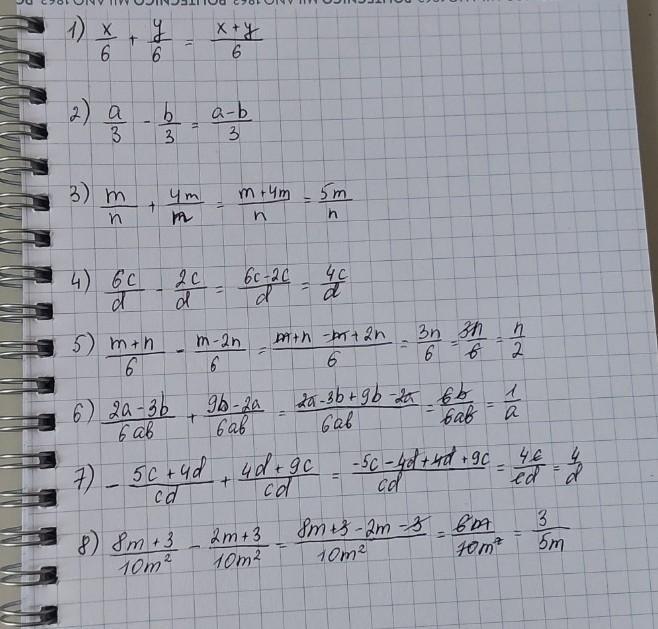 1) x/6 + y/6 = x+y/6
2) a/3 - b/3 = a-b/3
3) m/n + 4m/n = m+4m/n = 5m/n
4) 6c/d - 2c/d = 6c-2c/d = 4c/d
5) m+n/6 - m-2n/6 = m+n-m+2n/6 = 3n/6 = 3n/6 = n/2
6) 2a-3b/6ab + 9b-2a/6ab = 2a-3b+9b-2a/6ab = 6b/6ab = 1/a
7) - 5c+4d/cd + 4d+9c/cd = -5c-4d+4d+9c/cd = 4c/cd = 4/d
8) 8m+3/10m² - 2m+3/10m² = 8m+3-2m-3/10m² = 6m/10m² = 3/5m